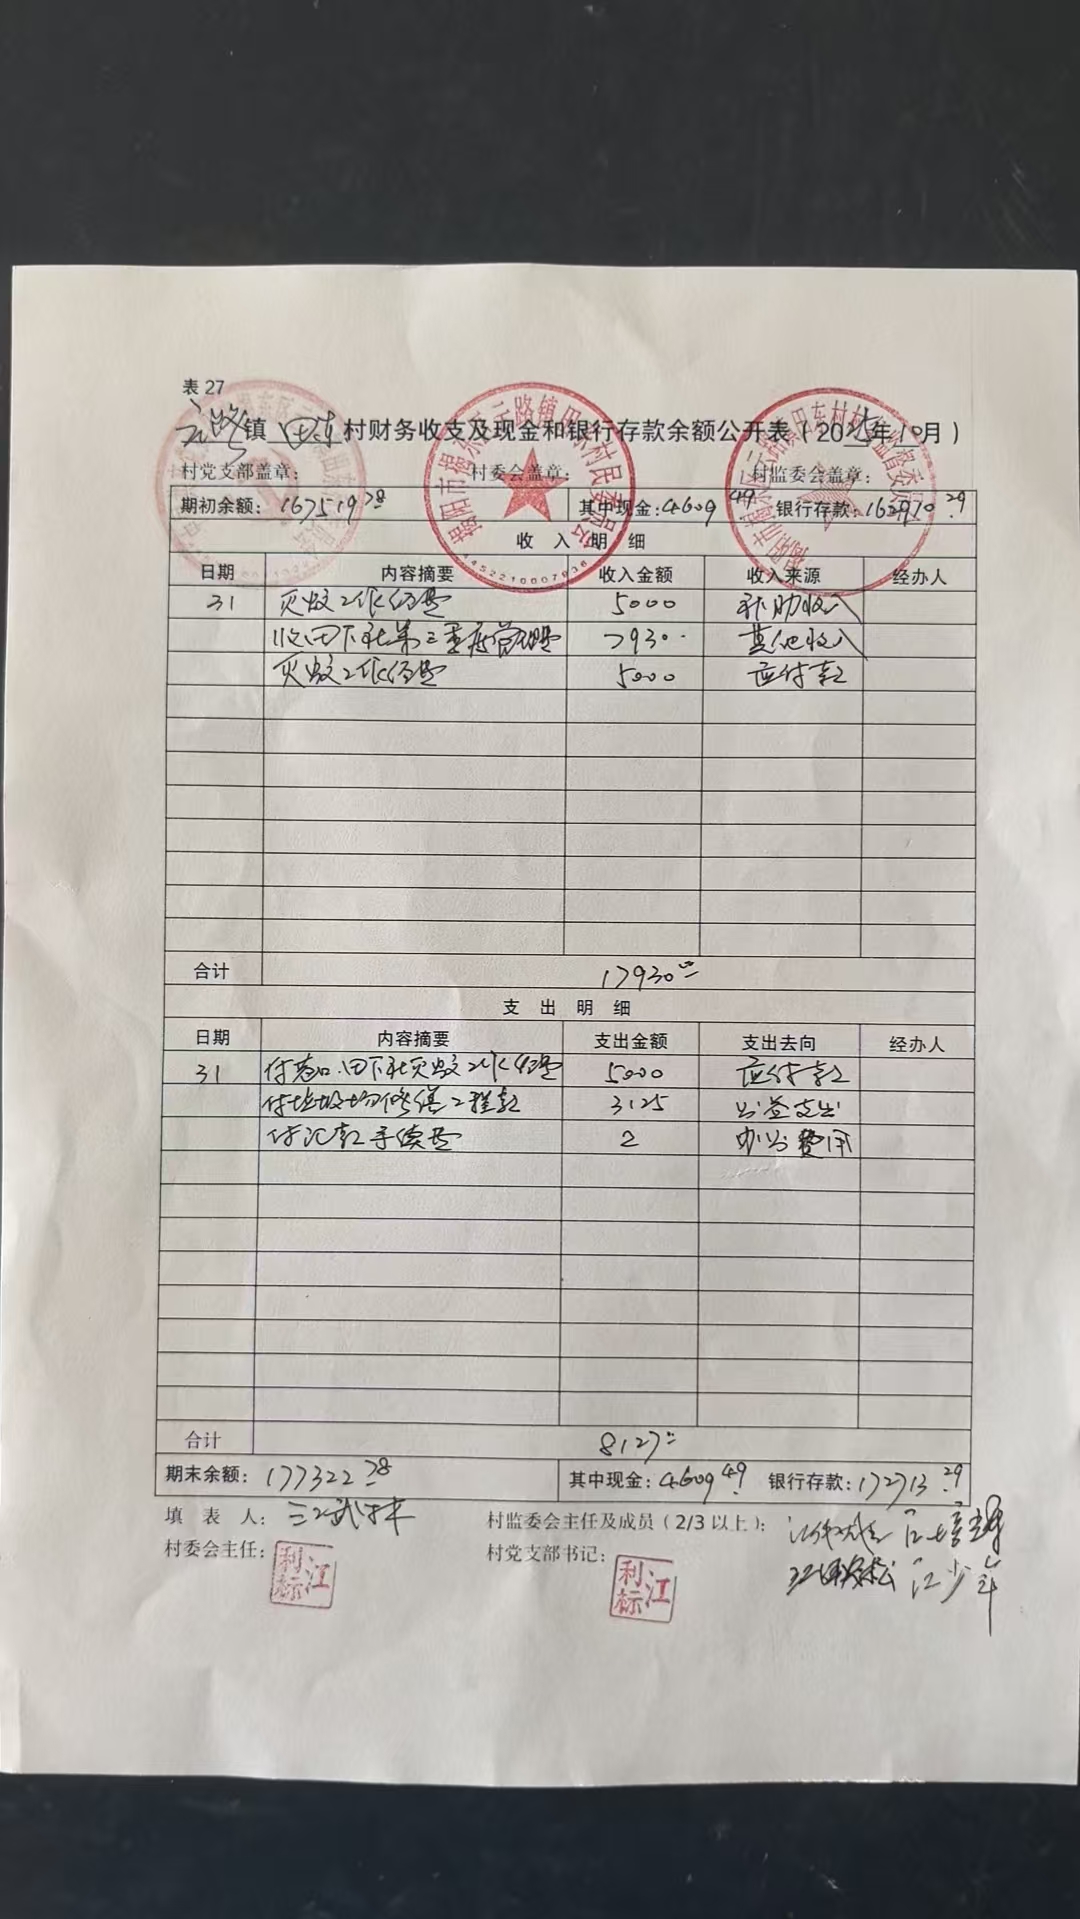 表 27
云路镇 田东 村财务收支及现金和银行存款余额公开表（2025年10月）
村党支部盖章： 村委会盖章： 村监委会盖章：
期初余额：167519.78 其中现金：4609.49 银行存款：162910.29
收 入 明 细
日期 内容摘要 收入金额 收入来源 经办人
31 灭蚊工作经费 5000 补助收入
收田下社第三季度管理费 7930 其他收入
灭蚊工作经费 5000 应付款
合计 17930
支 出 明 细
日期 内容摘要 支出金额 支出去向 经办人
31 付 田下社灭蚊工作经费 5000 应付款
付垃圾场修缮工程款 3125 公益支出
付汇款手续费 2 办公费用
合计 8127
期末余额：177322.78 其中现金：4609.49 银行存款：172713.29
填 表 人： 江武丰 村监委会主任及成员（2/3 以上）： 江培
村委会主任： 江利标 村党支部书记： 江利标 江少年